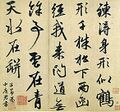 鍊得身形似鶴
形千株松下兩函
經我來問道無
餘說雲在青
天水在缾